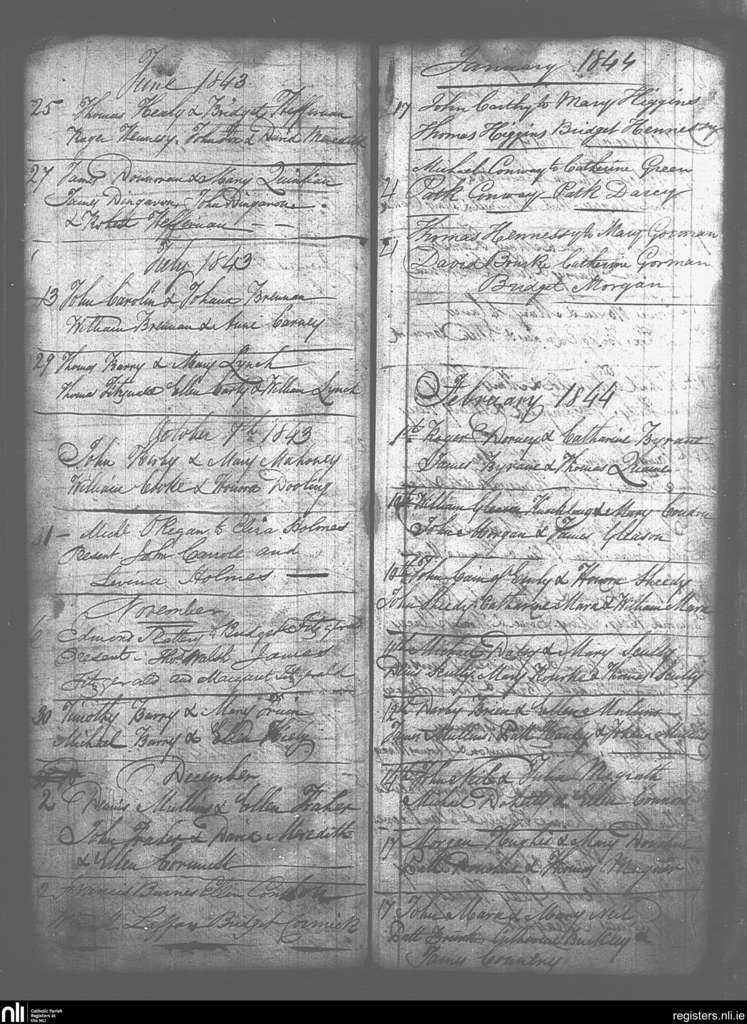 June 1843
25 Thomas Healy & Bridget Heffernan
Roger Kennedy, Johanna & David Meredith
27 James Donnovan & Mary Quinlan
James Dingavon, John Dingavone
& Robert Heffernan
July 1843
13 John Carolin & Johana Brennan
William Brennan & Anne Carney
29 Thomas Barry & Mary Lynch
Thomas Fitzgerald Ellen Carty & William Lynch
October 9th 1843
John Kirby & Mary Mahoney
William Cooke & Honora Dooling
11 Michl O Regan to Eliza Holmes
Present John Carrole and
Lavina Holmes
November
6 Edmond Slattery & Bridget Fitzgerald
Present Thos Walsh James
Fitzgerald and Margaret Fitzgerald
30 Timothy Barry & Mary
Michael Barry & Ellen Kiely
December
2 Denis Mullins & Ellen Fraher
John Fraher & Dana Meredith
& Ellen Cormick
Francis Burnes Ellen
Loffan Bridget Cormick
January 1844
17 John Carthy to Mary Higgins
Thomas Higgins Bridget Hennessy
Michael Conway to Catherine Green
21 Patk Conway Patk Darcy
Thomas Hennessy to Mary Gorman
21 David Bourke Catherine Gorman
Bridget Morgan
February 1844
1st Roger Dorney & Catharine Byrane
James Byrane & Thomas Quaine
10th William Gleeson & Mary Condon
John Morgan & James Gleason
10th John Cain of Emly & Honora Sheedy
John Sheedy Catharine Mara & William Mara
11th Michael Daly & Mary Scully
Denis Scully Mary Rourke & Thomas Scully
12th Darby Brien & Ellen Mullins
James Mullins, Batt Hanly & Johana Mullins
John Neil & Julia Megrath
Michael & Ellen Connors
17 Morgan Hughes & Mary Donohue
Batt Donohue & Thomas
17 John Mara & Mary Neil
Batt Catharine Buckley &
James Countney
nli
Catholic Parish
Registers at
the NLI
registers.nli.ie